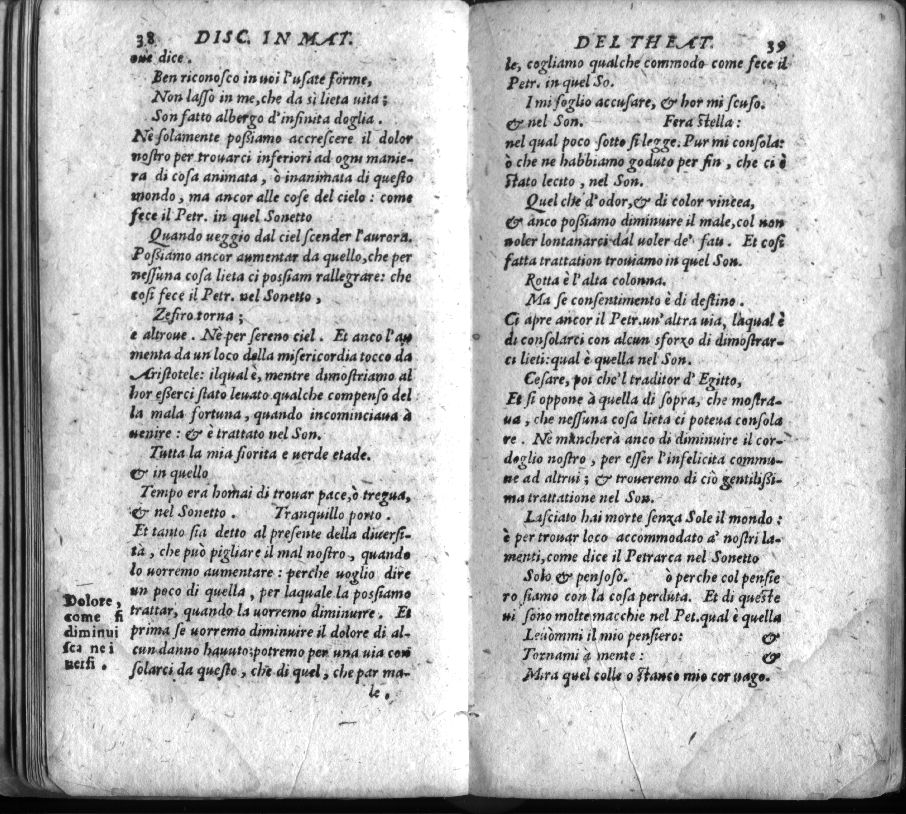 38 DISC. IN MAT.
oue dice.
Ben riconosco in uoi l'usate forme,
Non lasso in me, che da sì lieta uita;
Son fatto albergo d'infinita doglia.
Nè solamente poßiamo accrescere il dolor
nostro per trouarci inferiori ad ogni manie-
ra di cosa animata, ò inanimata di questo
mondo, ma ancor alle cose del cielo: come
fece il Petr. in quel Sonetto
Quando ueggio dal ciel scender l'aurora.
Possiamo ancor aumentar da quello, che per
nessuna cosa lieta ci possiam rallegrare: che
cosi fece il Petr. nel Sonetto,
Zefiro torna;
e altroue. Nè per sereno ciel. Et anco l'au
menta da un loco della misericordia tocco da
Aristotele: ilqual è, mentre dimostriamo al
hor eßerci stato leuato qualche compenso del
la mala fortuna, quando incominciaua à
uenire: & è trattato nel Son.
Tutta la mia fiorita e uerde etade.
& in quello
Tempo era homai di trouar pace, ò tregua,
& nel Sonetto. Tranquillo porto.
Et tanto sia detto al presente della diuersi-
tà, che può pigliare il mal nostro, quando
lo uorremo aumentare: perche uoglio dire
un poco di quella, per laquale la possiamo
trattar, quando la uorremo diminuire. Et
prima se uorremo diminuire il dolore di al-
cun danno hauuto: potremo per una uia con
solarci da questo, che di quel, che par ma-
le,
Dolore,
come si
diminui
sca ne i
uersi.
DEL THEAT. 39
le, cogliamo qualche commodo come fece il
Petr. in quel So.
I mi soglio accusare, & hor mi scuso.
& nel Son. Fera stella:
nel qual poco sotto si legge. Pur mi consola:
ò che ne habbiamo goduto per fin, che ci è
stato lecito, nel Son.
Quel che d'odor, & di color vincea,
& anco poßiamo diminuire il male, col non
uoler lontanarci dal uoler de' fati. Et cosi
fatta trattation trouiamo in quel Son.
Rotta è l'alta colonna.
Ma se consentimento è di destino.
Ci apre ancor il Petr. un'altra uia, laqual è
di consolarci con alcun sforzo di dimostrar-
ci lieti: qual è quella nel Son.
Cesare, poi che'l traditor d'Egitto,
Et si oppone à quella di sopra, che mostra-
ua, che nessuna cosa lieta ci poteua consola
re. Nè mancherà anco di diminuire il cor-
doglio nostro, per esser l'infelicita commu-
ne ad altrui; & troueremo di ciò gentilißi-
ma trattatione nel Son.
Lasciato hai morte senza Sole il mondo:
è per trouar loco accommodato a' nostri la-
menti, come dice il Petrarca nel Sonetto
Solo & pensoso. ò perche col pensie
ro siamo con la cosa perduta. Et di queste
ui sono molte macchie nel Pet. qual è quella
Leuòmmi il mio pensiero: &
Tornami a mente: &
Mira quel colle o stanco mio cor uago.